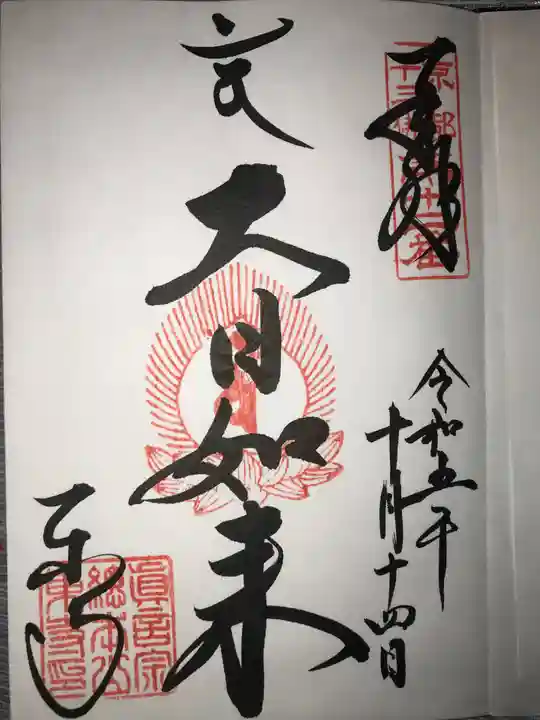 奉拝
京都
十三佛
第十二番
令和五年
十月十四日
大日如来
東寺
真言宗
總本山
東寺印